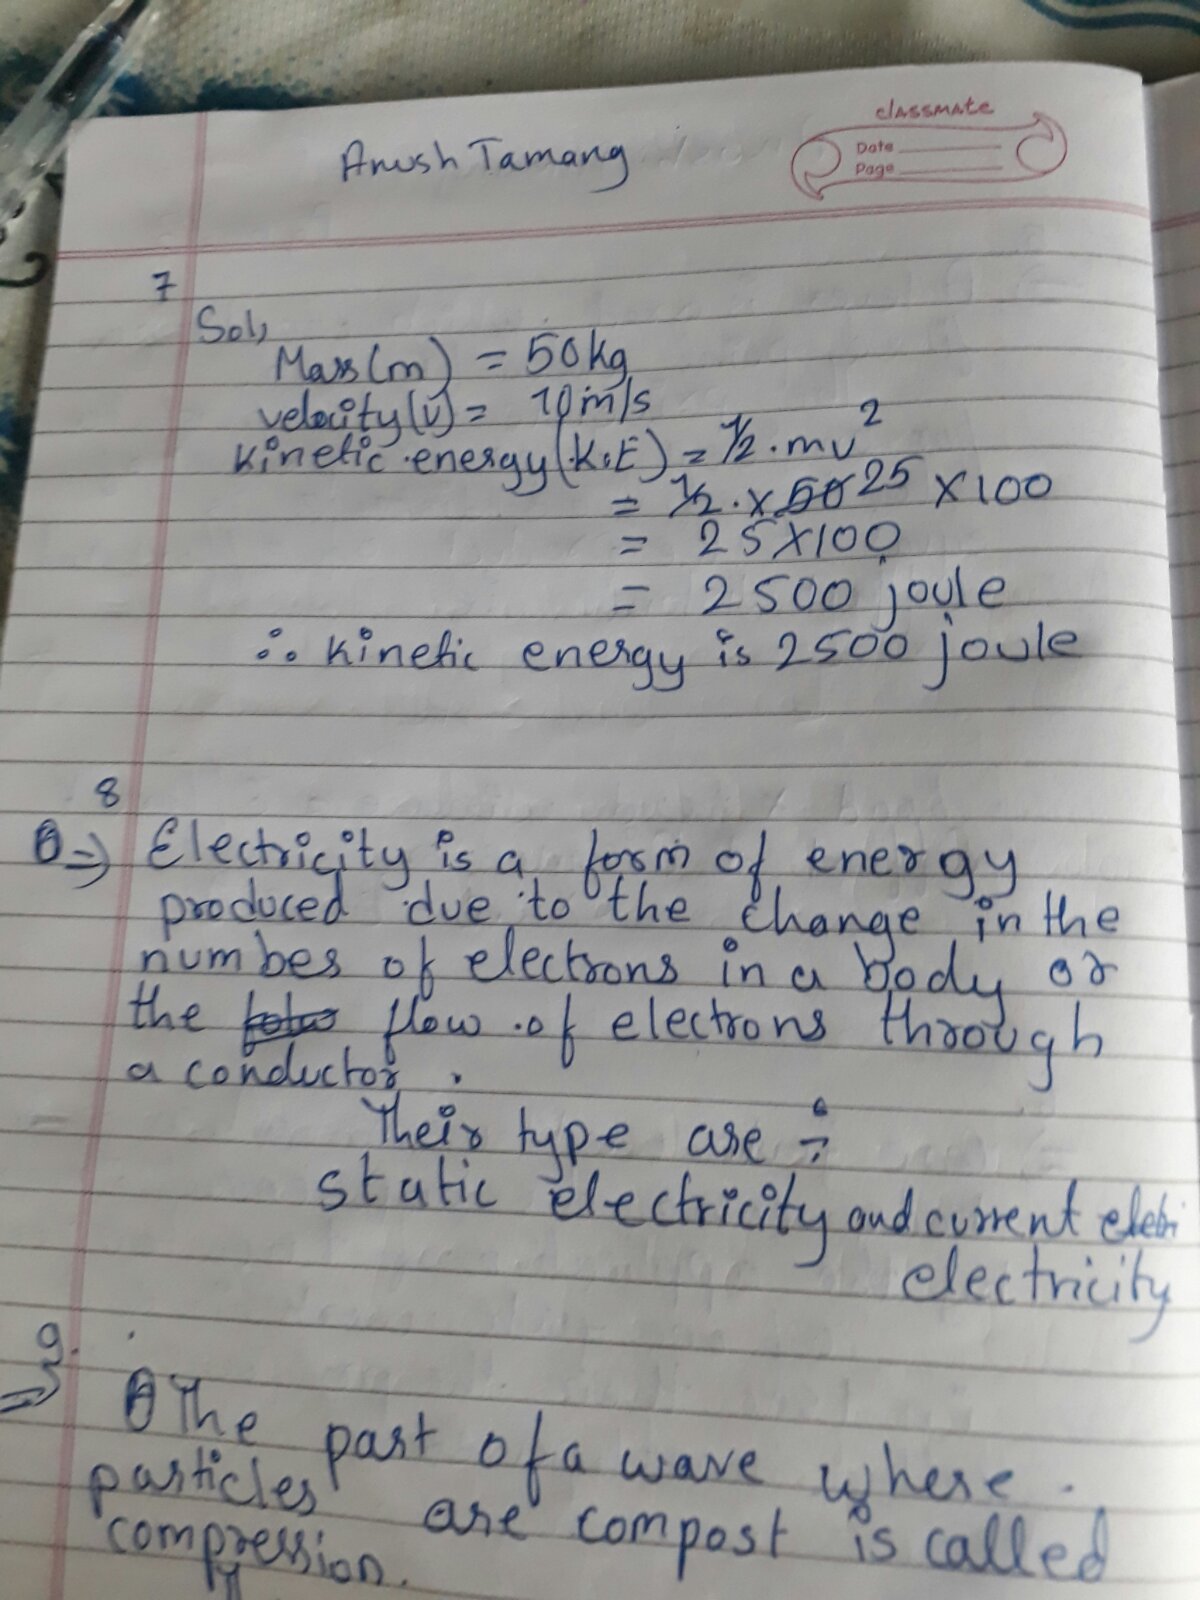 classmate
Date
Page
Anush Tamang
7
Sol,
Mass(m) = 50kg
velocity(v) = 10m/s
kinetic energy(K.E) = 1/2 . mv²
= 1/2 . x 50 25 x 100
= 25 x 100
= 2500 joule
∴ kinetic energy is 2500 joule
8
⇒ Electricity is a form of energy
produced due to the change in the
number of electrons in a body or
the flow of electrons through
a conductor.
Their type are :-
static electricity and current eletri
electricity
9.
⇒ The part of a wave where
particles are compost is called
compression.